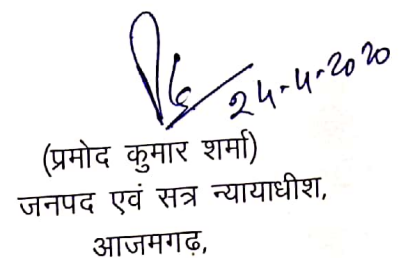 24-4-2020
(प्रमोद कुमार शर्मा)
जनपद एवं सत्र न्यायाधीश,
आजमगढ़,